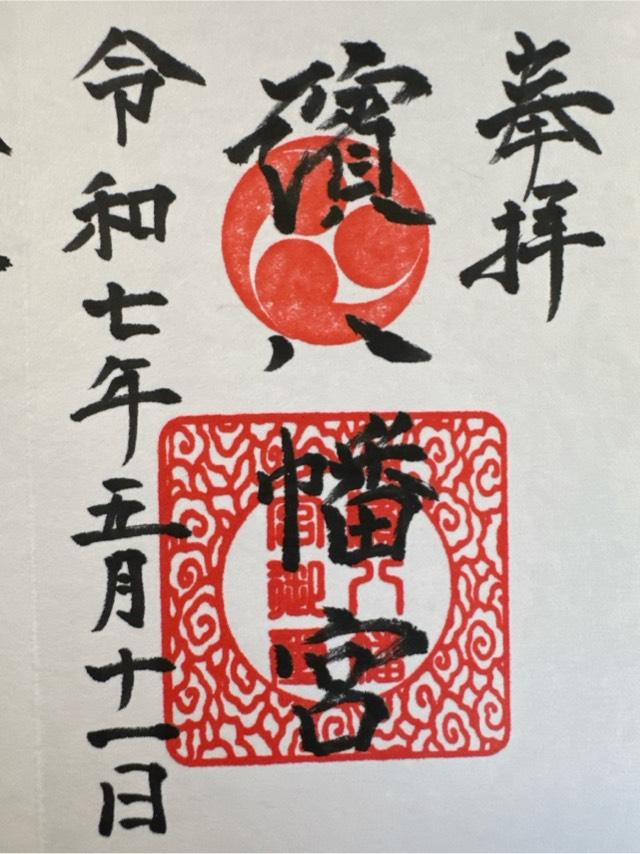 奉拝
八幡宮
令和七年五月十一日